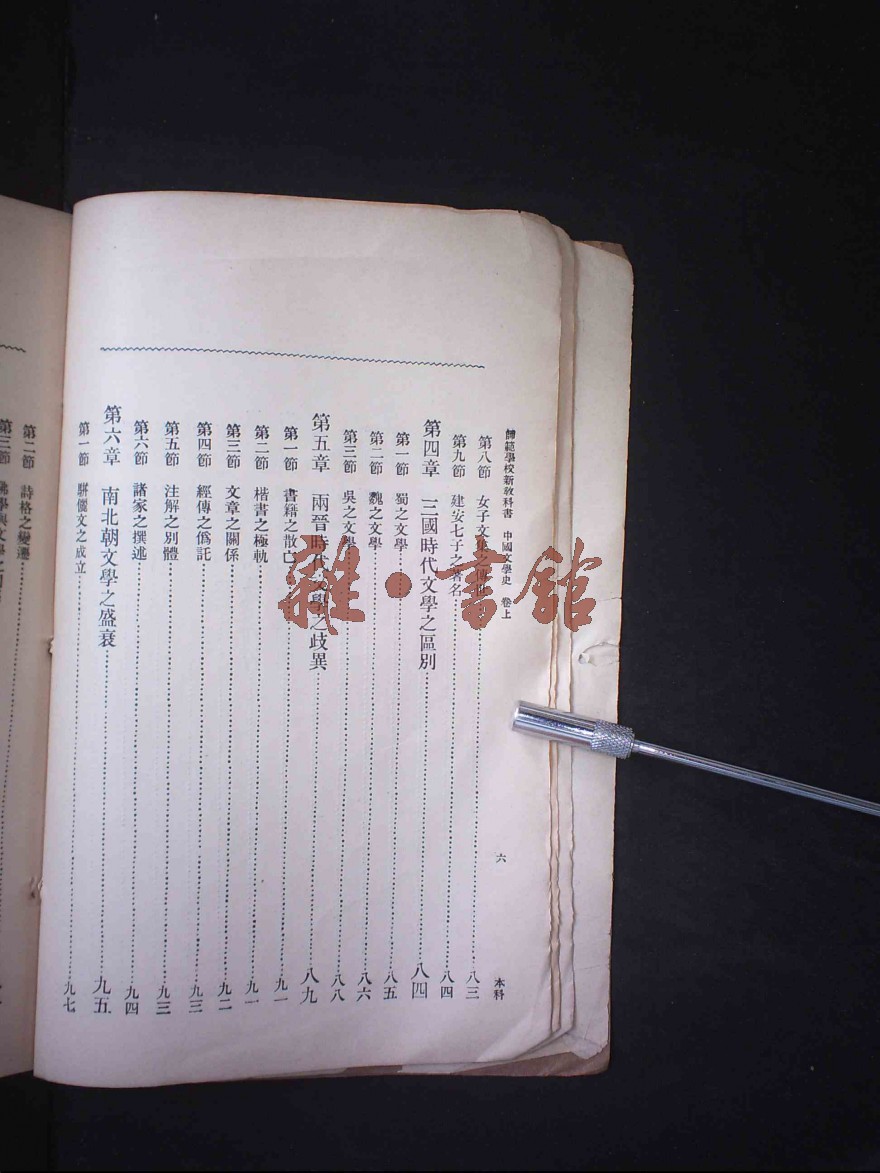 師範學校新教科書 中國文學史 卷上 六 本科
第八節 女子文集之傳世 八三
第九節 建安七子之著名 八四
第四章 三國時代文學之區別 八四
第一節 蜀之文學 八五
第二節 魏之文學 八六
第三節 吳之文學 八八
第五章 兩晉時代文學之歧異 八九
第一節 書籍之散亡 九一
第二節 楷書之極軌 九一
第三節 文章之關係 九二
第四節 經傳之僞託 九三
第五節 注解之別體 九三
第六節 諸家之撰述 九四
第六章 南北朝文學之盛衰 九五
第一節 駢儷文之成立 九七
第二節 詩格之變遷
第三節 佛學與文學之
雜·書館